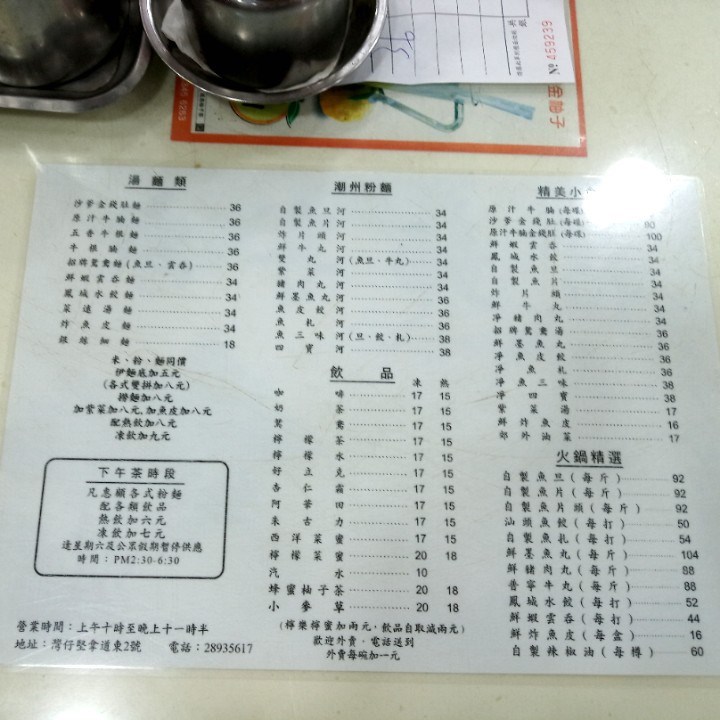 Nº 459239
金柚子
湯麵類
沙爹金錢肚麵 36
原汁牛腩麵 36
五香牛根麵 36
牛根腩麵 36
招牌鴛鴦麵(魚旦、雲吞) 36
鮮蝦雲吞麵 34
鳳城水餃麵 34
菜遠湯麵 34
炸魚皮麵 34
銀絲細麵 18
米、粉、麵同價
伊麵底加五元
(各式雙拼加八元)
撈麵加八元
加紫菜加八元,加魚皮加八元
配熱飲加八元
凍飲加九元
下午茶時段
凡惠顧各式粉麵
配各類飲品
熱飲加六元
凍飲加七元
逢星期六及公眾假期暫停供應
時間：PM2:30-6:30
營業時間：上午十時至晚上十一時半
地址：灣仔堅拿道東2號 電話：28935617
潮州粉麵
自製魚旦河 34
自製魚片河 34
炸片頭河 34
鮮牛丸河 34
雙丸河(魚旦、牛丸) 34
紫菜河 34
豬肉丸河 34
鮮墨魚丸河 36
魚皮餃河 36
魚札河 36
魚三味河(旦、餃、札) 38
四寶河 38
飲品
凍 熱
咖啡 17 15
奶茶 17 15
鴛鴦 17 15
檸檬茶 17 15
檸檬水 17 15
好立克 17 15
杏仁霜 17 15
阿華田 17 15
朱古力 17 15
西洋菜蜜 17 15
檸檬菜蜜 20 18
汽水 10
蜂蜜柚子茶 20 18
小麥草 20 18
(檸樂檸蜜加兩元,飲品自取減兩元)
歡迎外賣、電話送到
外賣每碗加一元
精美小
原汁牛腩(每碟)
沙爹金錢肚(每碟) 90
原汁牛腩金錢肚(每碟) 100
鮮蝦雲吞 34
鳳城水餃 34
自製魚旦 34
自製魚片 34
炸片頭 34
鮮牛丸 34
淨豬肉丸 34
招牌鴛鴦湯 34
鮮墨魚丸 36
淨魚皮餃 36
淨魚札 36
淨魚三味 38
淨四寶 38
紫菜湯 17
鮮炸魚皮 16
郊外油菜 17
火鍋精選
自製魚旦(每斤) 92
自製魚片(每斤) 92
自製魚片頭(每斤) 92
汕頭魚餃(每打) 50
自製魚札(每打) 54
鮮墨魚丸(每斤) 104
鮮豬肉丸(每斤) 88
普寧牛丸(每斤) 88
鳳城水餃(每打) 52
鮮蝦雲吞(每打) 44
鮮炸魚皮(每盒) 16
自製辣椒油(每樽) 60